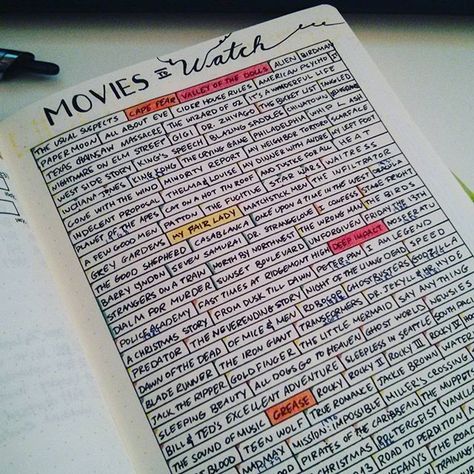 MOVIES to Watch
THE USUAL SUSPECTS CAPE FEAR VALLEY OF THE DOLLS ALIEN BIRDMAN
PAPER MOON ALL ABOUT EVE CIDER HOUSE RULES AMERICAN PSYCHO
TEXAS CHAINSAW MASSACRE THE WIZARD OF OZ IT'S A WONDERFUL LIFE
NIGHTMARE ON ELM STREET GIGI DR. ZHIVAGO THE BUCKET LIST TANGLED
WEST SIDE STORY KING'S SPEECH BLAZING SADDLES CHINATOWN
INDIANA JONES KING KONG THE CRYING GAME PHILADELPHIA WHIPLASH
GONE WITH THE WIND MINORITY REPORT MY NEIGHBOR TOTORO
INDECENT PROPOSAL THELMA & LOUISE MY DINNER WITH ANDRE MY LEFT FOOT
PLANET OF THE APES CAT ON A HOT TIN ROOF AND JUSTICE FOR ALL HEAT
A FEW GOOD MEN PATTON THE FUGITIVE STAR WARS WAITRESS
GREY GARDENS MY FAIR LADY MATCHSTICK MEN THE INFILTRATOR
THE GOOD SHEPHERD CASABLANCA ONCE UPON A TIME IN THE WEST
BARRY LYNDON SEVEN SAMURAI DR. STRANGELOVE STAGE FRIGHT
STRANGERS ON A TRAIN NORTH BY NORTHWEST THE WRONG MAN THE BIRDS
DIAL M FOR MURDER SUNSET BOULEVARD UNFORGIVEN FRIDAY THE 13TH
POLICE ACADEMY FAST TIMES @ RIDGEMONT HIGH DEEP IMPACT NOSFERATU
A CHRISTMAS STORY FROM DUSK TILL DAWN PETER PAN I AM LEGEND
PREDATOR THE NEVERENDING STORY NIGHT OF THE LIVING DEAD SPEED
DAWN OF THE DEAD OF MICE & MEN ROBOCOP GHOSTBUSTERS
BLADE RUNNER THE IRON GIANT TRANSFORMERS DR. JEKYLL & MR. HYDE
TALK THE RIPPER GOLDFINGER THE LITTLE MERMAID SAY ANYTHING
SLEEPING BEAUTY ALL DOGS GO TO HEAVEN GHOST WORLD
BILL & TED'S EXCELLENT ADVENTURE SLEEPLESS IN SEATTLE
THE SOUND OF MUSIC GREASE ROCKY ROCKY II ROCKY III ROCKY IV
BLOOD TEEN WOLF TRUE ROMANCE JACKIE BROWN WATCH
MAD MAX MISSION: IMPOSSIBLE MILLER'S CROSSING
PIRATES OF THE CARIBBEAN THE MUPPETS
ROAD TO PERDITION POLTERGEIST